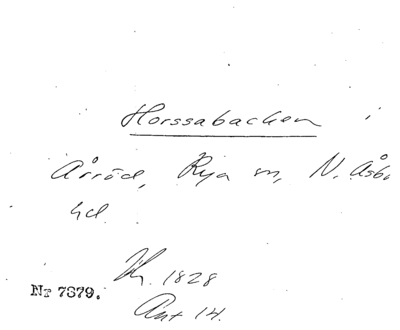 Horssabacken i
Årröd, Rya sn, N. Åsbo
hd
Nr 7379. 1828
Akt 14.